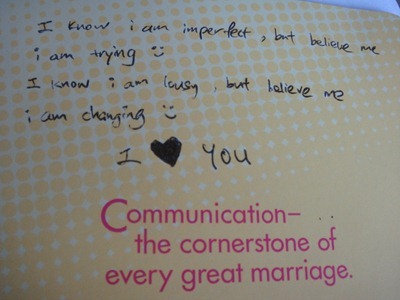 I know i am imperfect, but believe me
i am trying :)
I know i am lousy, but believe me
i am changing :)
I ♥ YOU
Communication–
the cornerstone of
every great marriage.